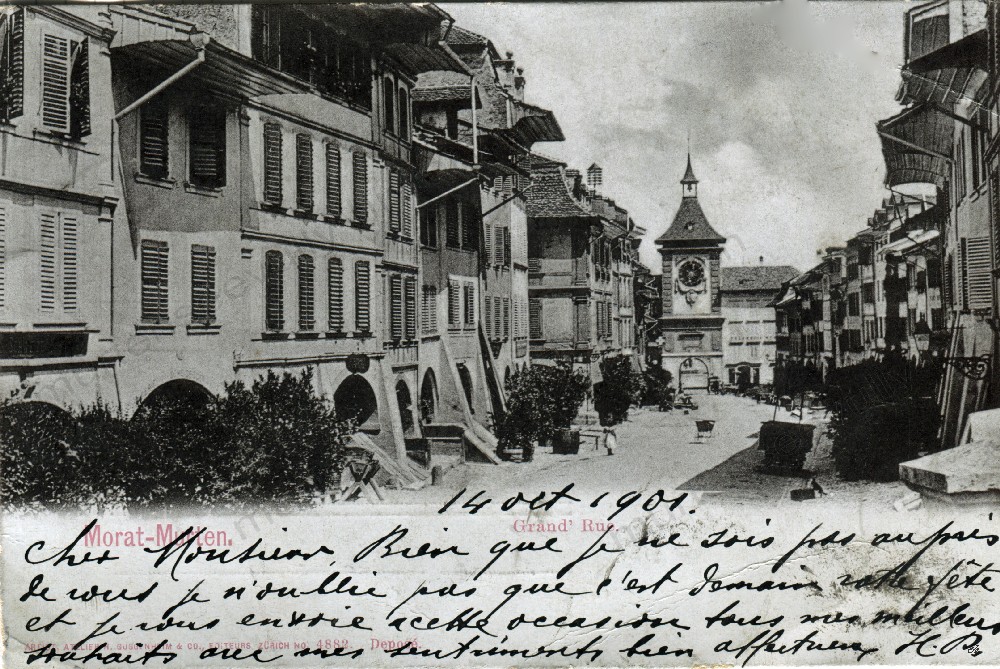 14 oct 1901.
Morat-Murten.
Grand' Rue.
Cher Monsieur, Bien que je ne sois pas auprès
de vous je n'oublie pas que c'est demain votre fête
et je vous envoie a cette occasion tous mes meilleurs
ARTIST. ATELIER H. GUGGENHEIM & CO., EDITEURS, ZÜRICH NO. 4882. Deposé.
souhaits avec mes sentiments bien affectueux H.B.